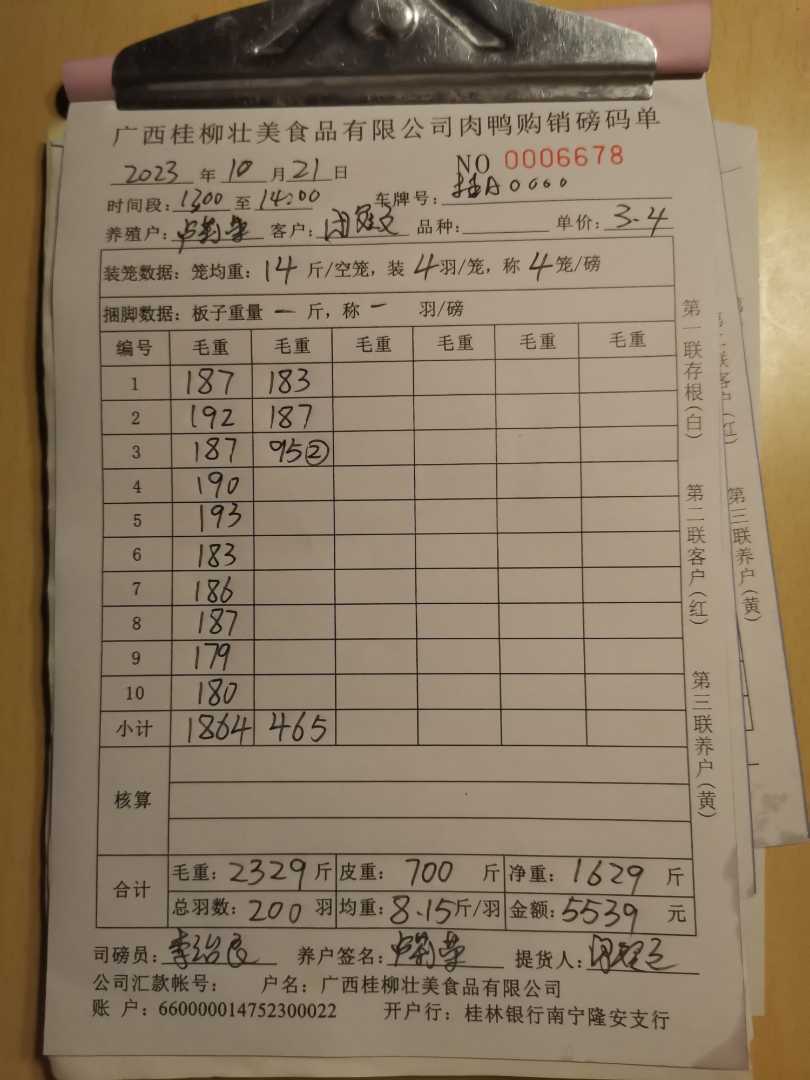 广西桂柳壮美食品有限公司肉鸭购销磅码单
2023 年 10 月 21 日 NO 0006678
时间段: 1300 至 14:00 车牌号: 桂A0000
养殖户: 卢 荣 客户: 品种: 单价: 3.4
装笼数据: 笼均重: 14 斤/空笼, 装 4 羽/笼, 称 4 笼/磅
捆脚数据: 板子重量 一 斤, 称 一 羽/磅
编号 毛重 毛重 毛重 毛重 毛重 毛重
1 187 183
2 192 187
3 187 95②
4 190
5 193
6 183
7 186
8 187
9 179
10 180
小计 1864 465
核算
合计 毛重: 2329 斤 皮重: 700 斤 净重: 1629 斤
总羽数: 200 羽 均重: 8.15 斤/羽 金额: 5539 元
司磅员: 李治良 养户签名: 卢 荣 提货人:
公司汇款帐号: 户名: 广西桂柳壮美食品有限公司
账 户: 660000014752300022 开户行: 桂林银行南宁隆安支行
第一联存根(白)
第二联客户(红)
第三联养户(黄)
第二联客户(红)
第三联养户(黄)